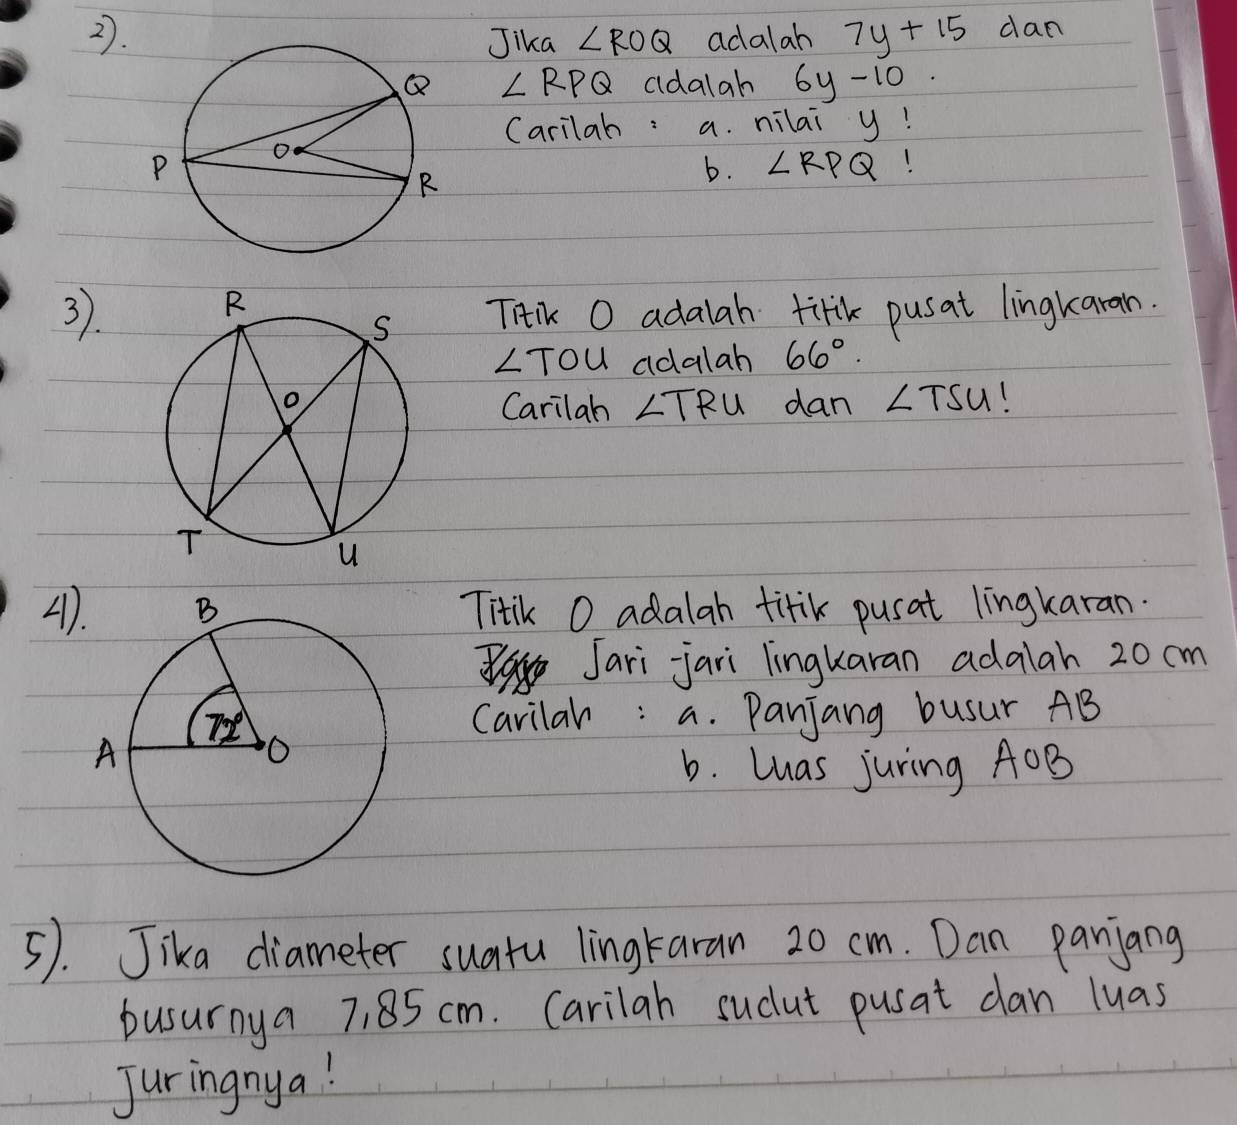 2). Jika ∠ROQ adalah 7y + 15 dan
∠RPQ adalah 6y - 10.
Carilah : a. nilai y !
b. ∠RPQ !
Q
O
P
R
3). Titik O adalah titik pusat lingkaran.
∠TOU adalah 66°.
Carilah ∠TRU dan ∠TSU!
R
S
O
T
U
4). Titik O adalah titik pusat lingkaran.
Jari-jari lingkaran adalah 20 cm
Carilah : a. Panjang busur AB
b. Luas juring AOB
B
72°
A
O
5). Jika diameter suatu lingkaran 20 cm. Dan panjang
busurnya 7,85 cm. Carilah sudut pusat dan luas
Juringnya!